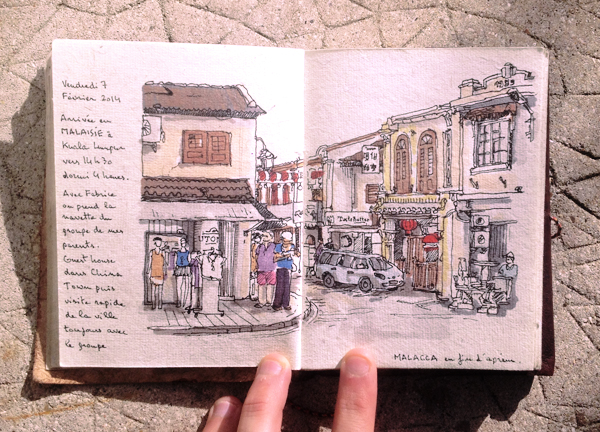 Vendredi 7
Février 2014
Arrivée en
MALAISIE à
Kuala Lumpur
vers 14h30
dormi 4 heures.
Avec Fabrice
on prend la
navette du
groupe de mes
parents.
Guest house
dans China
Town puis
visite rapide
de la ville
toujours avec
le groupe
UTO
MALACCA en fin d'aprem.